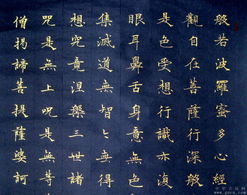 般若波羅蜜多心經
觀自在菩薩行深般
是色受想行識亦復
眼耳鼻舌身意無色
集滅道無智亦無得
想究竟涅槃三世諸
咒是無上咒是無等
僧揭諦菩提薩婆訶